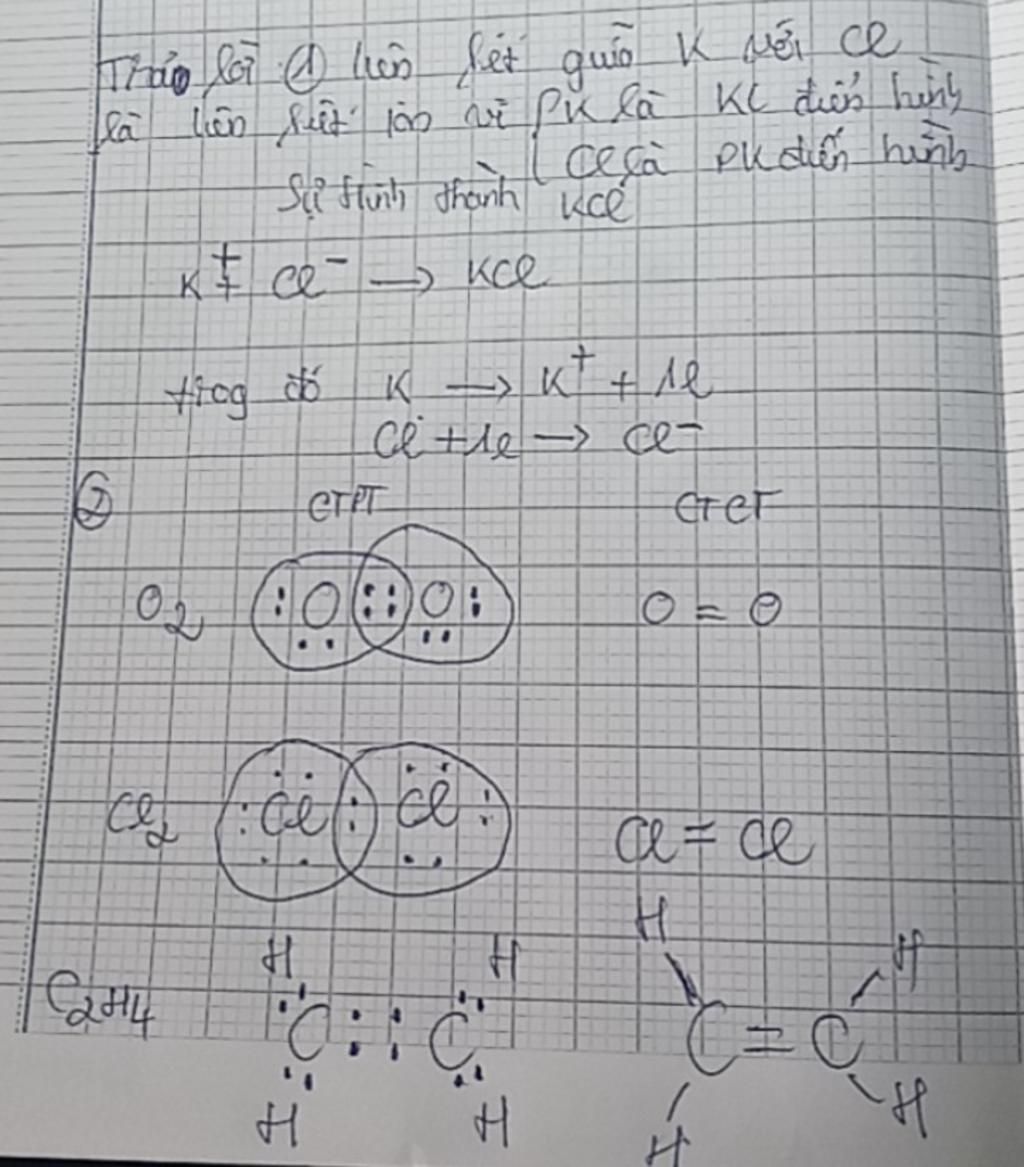 Trả lời ① liên kết giữa K với Cl
là liên kết ion vì K là KL điển hình
Cl là PK điển hình
Sự hình thành KCl
K⁺ + Cl⁻ → KCl
trog đó K → K⁺ + 1e
Cl + 1e → Cl⁻
② CTPT CTCT
O₂ :O::O: O = O
Cl₂ :Cl:Cl: Cl = Cl
H H H H
C₂H₄ C::C C = C
H H H H